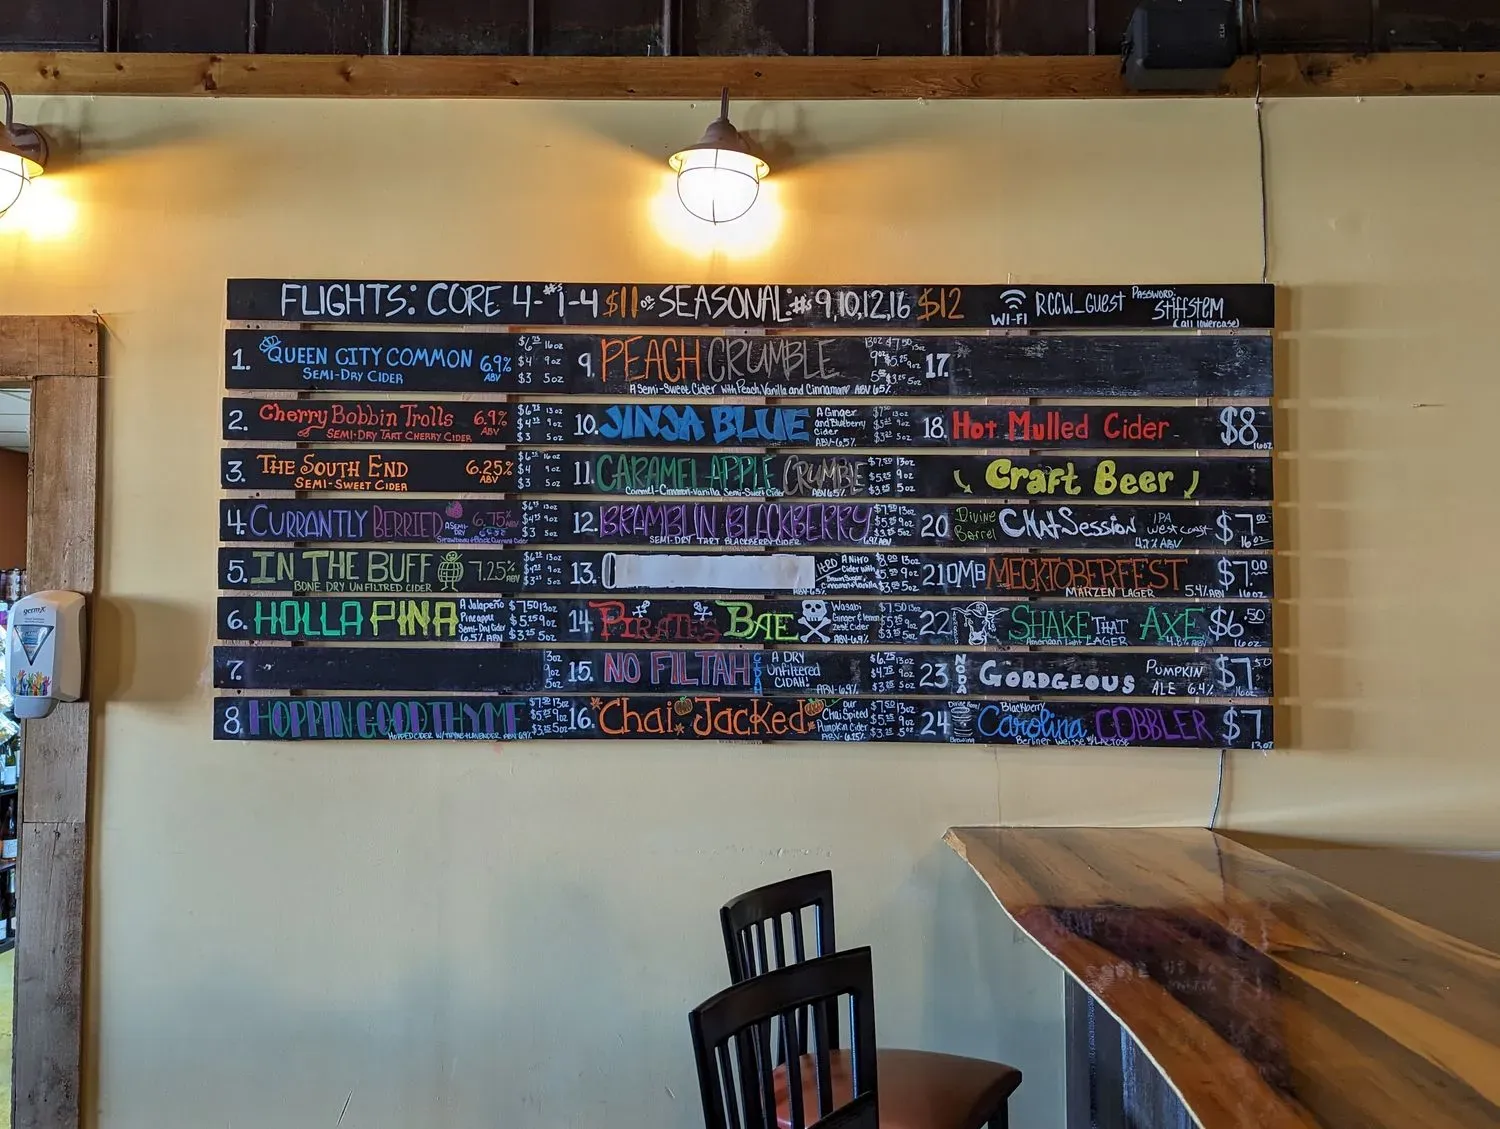 FLIGHTS: CORE 4-#'s 1-4 $11 or SEASONAL: #s 9,10,12,16 $12
WI-FI RCCW_Guest Password: Stiffstem
(all lowercase)
1. QUEEN CITY COMMON 6.9% ABV
SEMI-DRY CIDER
16oz
$4 9oz
$3 5oz
2. Cherry Bobbin Trolls 6.9% ABV
SEMI-DRY TART CHERRY CIDER
13oz
9oz
$3 5oz
3. THE SOUTH END 6.25% ABV
SEMI-SWEET CIDER
16oz
$4 9oz
$3 5oz
4. CURRANTLY BERRIED 6.75% ABV
A SEMI-DRY
Strawberry & Black Currant Cider
13oz
9oz
$3 5oz
5. IN THE BUFF 7.25% ABV
BONE DRY UNFILTRED CIDER
13oz
9oz
5oz
6. HOLLA PINA
A Jalapeño
Pineapple
Semi-Dry Cider
6.5% ABV
$7.50 13oz
$5.25 9oz
$3.25 5oz
7.
13oz
9oz
5oz
8. HOPPIN GOOD THYME
HOPPED CIDER W/ THYME & LAVENDER ABV 6.9%
$7.50 13oz
$5.25 9oz
$3.25 5oz
9. PEACH CRUMBLE
A Semi-Sweet Cider with Peach, Vanilla and Cinnamon ABV 6.5%
13oz $7.50
9oz $5.25
5oz $3.25
10. JINJA BLUE
A Ginger
and Blueberry
Cider
ABV-6.5%
$7.50 13oz
$5.25 9oz
$3.25 5oz
11. CARAMEL APPLE CRUMBLE
Caramel-Cinnamon-Vanilla Semi-Sweet Cider ABV 6.5%
$7.50 13oz
$5.25 9oz
$3.25 5oz
12. BRAMBLIN BLACKBERRY
SEMI-DRY TART BLACKBERRY CIDER 6.9% ABV
$7.50 13oz
$5.25 9oz
$3.25 5oz
13.
A Nitro
Cider with
Brown Sugar,
Cinnamon & Vanilla
ABV-6.5%
$8.00 13oz
9oz
5oz
14. PIRATES BAE
Wasabi
Ginger & Lemon
Zest Cider
ABV-6.9%
$7.50 13oz
$5.25 9oz
$3.25 5oz
15. NO FILTAH CIDAH
A DRY
Unfiltered
CIDAH!
ABV-6.9%
$6.75 13oz
$4.75 9oz
$3.25 5oz
16. Chai Jacked
our
Chai Spiced
Pumpkin Cider
ABV-6.5%
$7.50 13oz
$5.25 9oz
$3.25 5oz
17.
18. Hot Mulled Cider $8
16oz
Craft Beer
20 Divine Barrel CHAt SESSION IPA West Coast $7.00
4.7% ABV 16oz
21 OMB MECKTOBERFEST $7.00
MARZEN LAGER 5.4% ABV 16oz
22 SHAKE THAT AXE $6.50
American Light LAGER 4.8% ABV 16oz
23 NODA GORDGEOUS PUMPKIN ALE 6.4% $7.50
16oz
24 Divine Barrel Brewing Blackberry Carolina COBBLER $7
Berliner Weisse w/ LACTOSE 13oz
germx